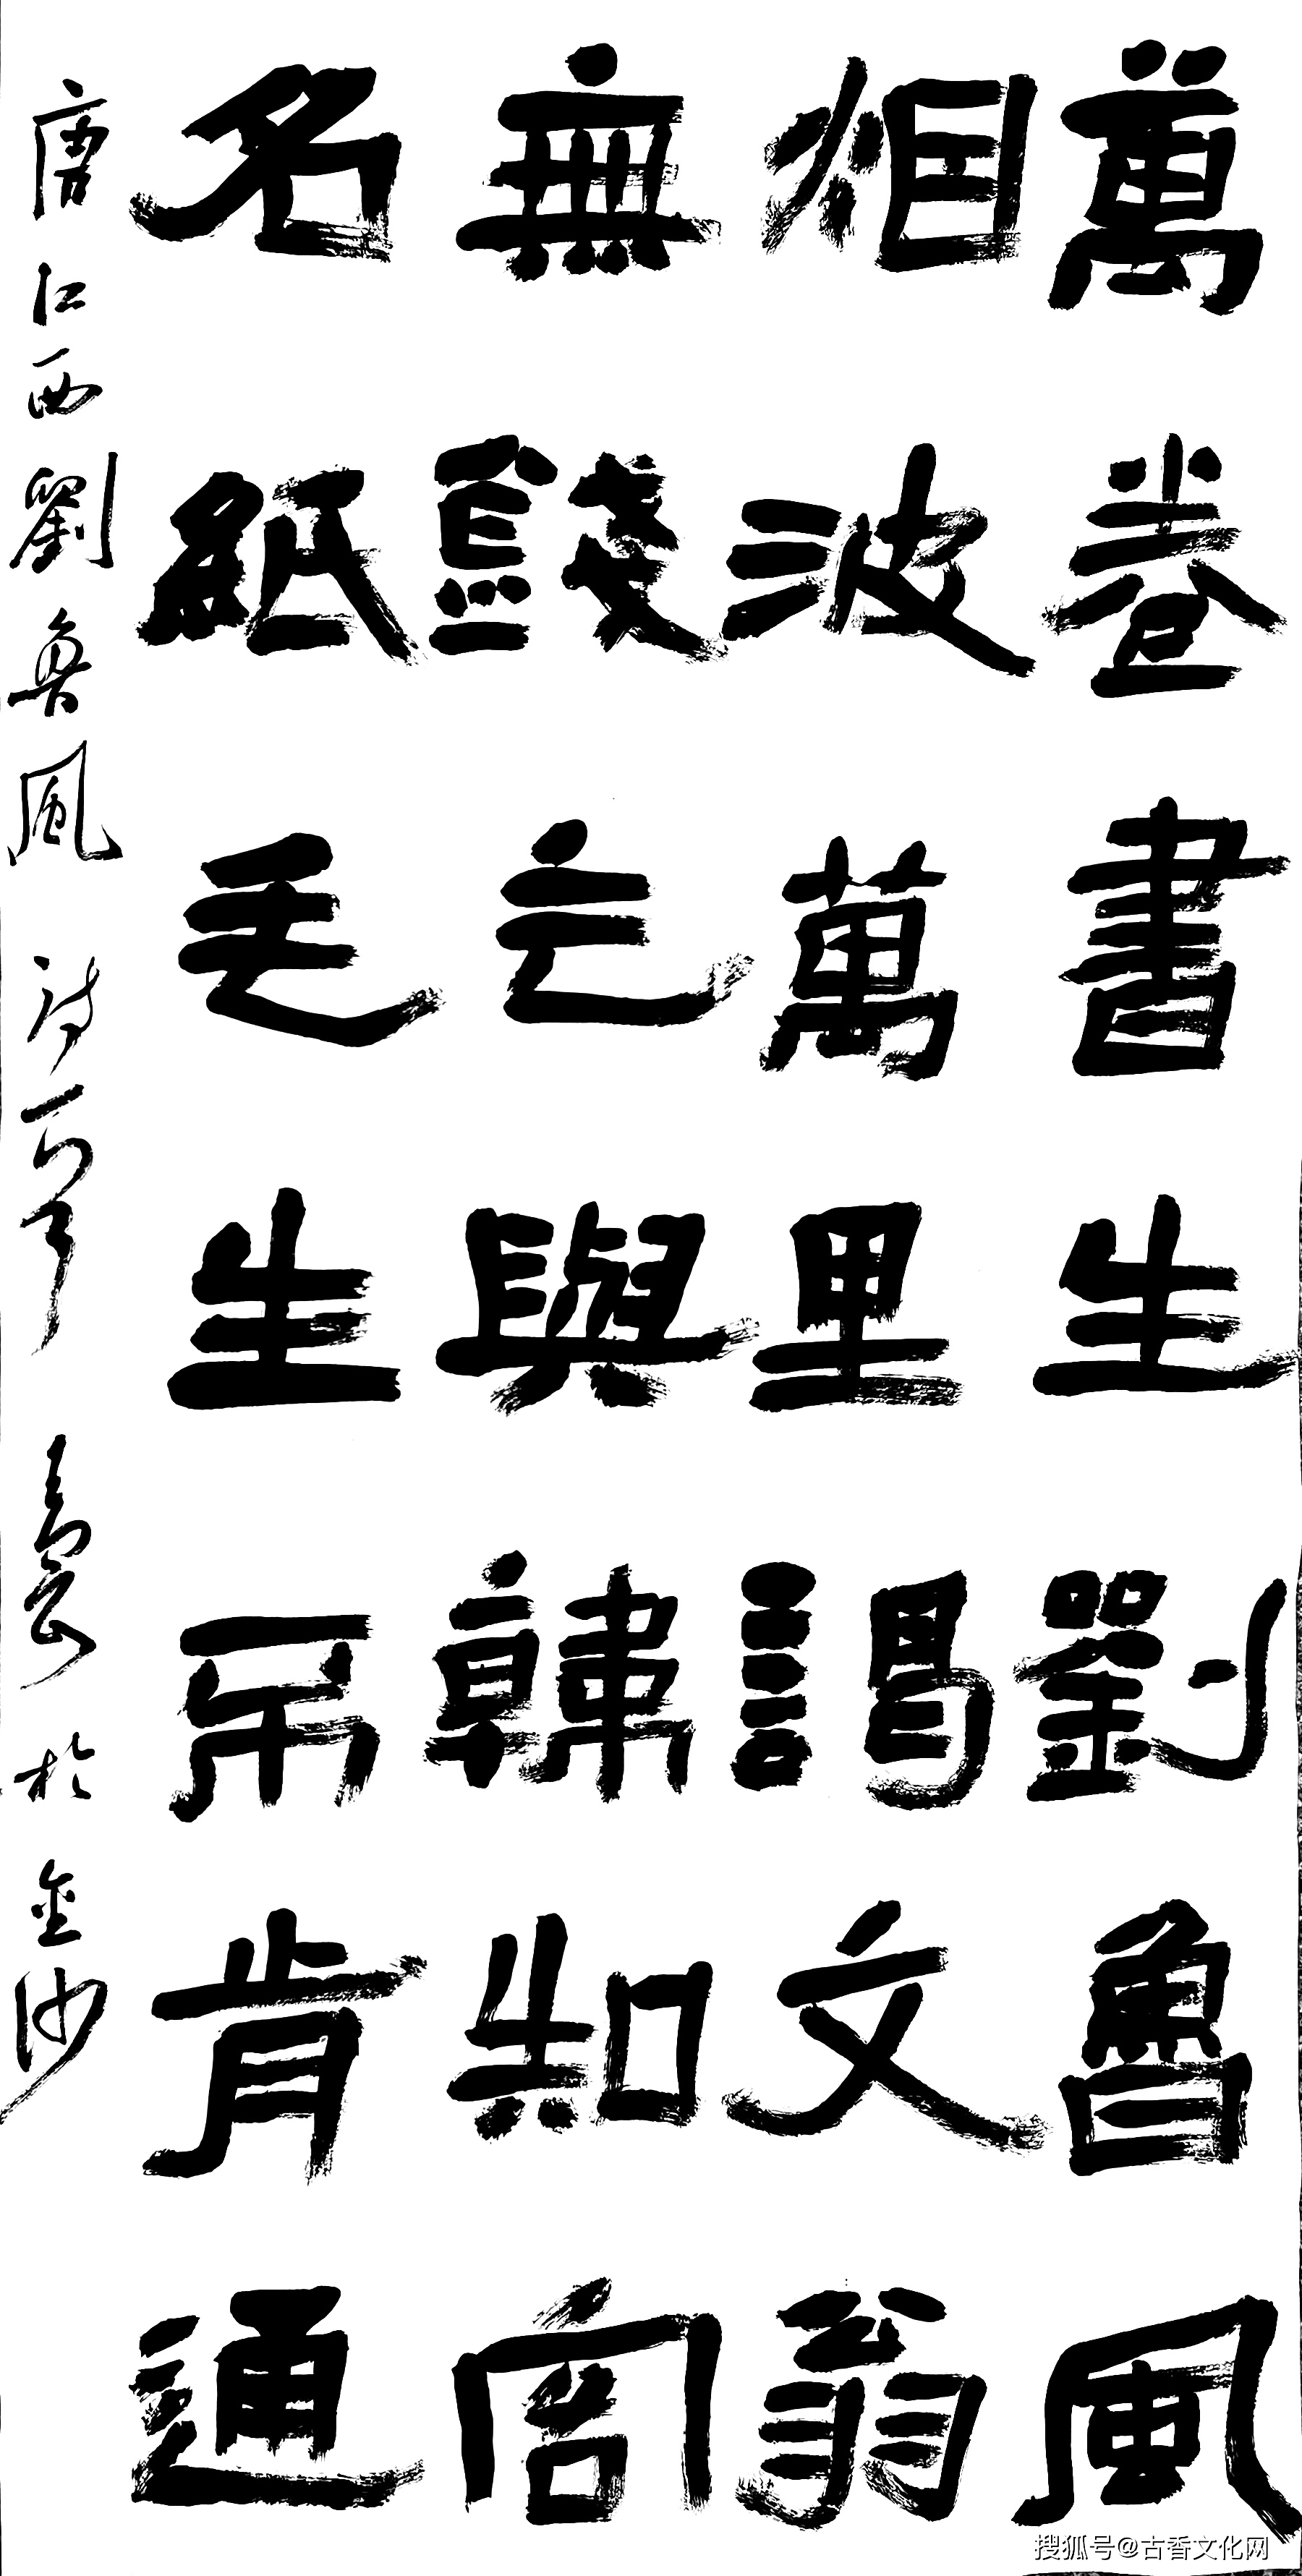 萬卷書生劉魯風
烟波萬里謁文翁
無錢乞與韓知客
名紙毛生不肯通
唐江西劉魯風詩一首 於金沙
搜狐号@古香文化网